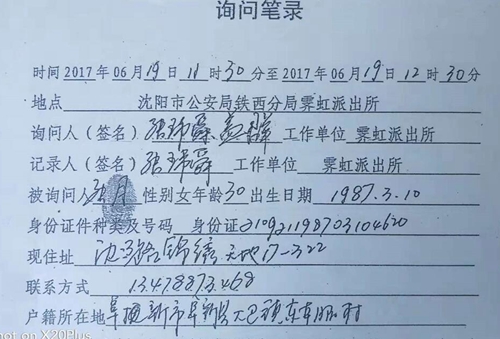 询问笔录
时间2017年06月19日11时30分至2017年06月19日12时30分
地点 沈阳市公安局铁西分局霁虹派出所
询问人(签名) 工作单位 霁虹派出所
记录人(签名) 工作单位 霁虹派出所
被询问人 月 性别女年龄30出生日期 1987.3.10
身份证件种类及号码 身份证210921198703104620
现住址 天地 7-322
联系方式 13478873468
户籍所在地 阜新市阜新县大巴镇东 村
not on X20Plus